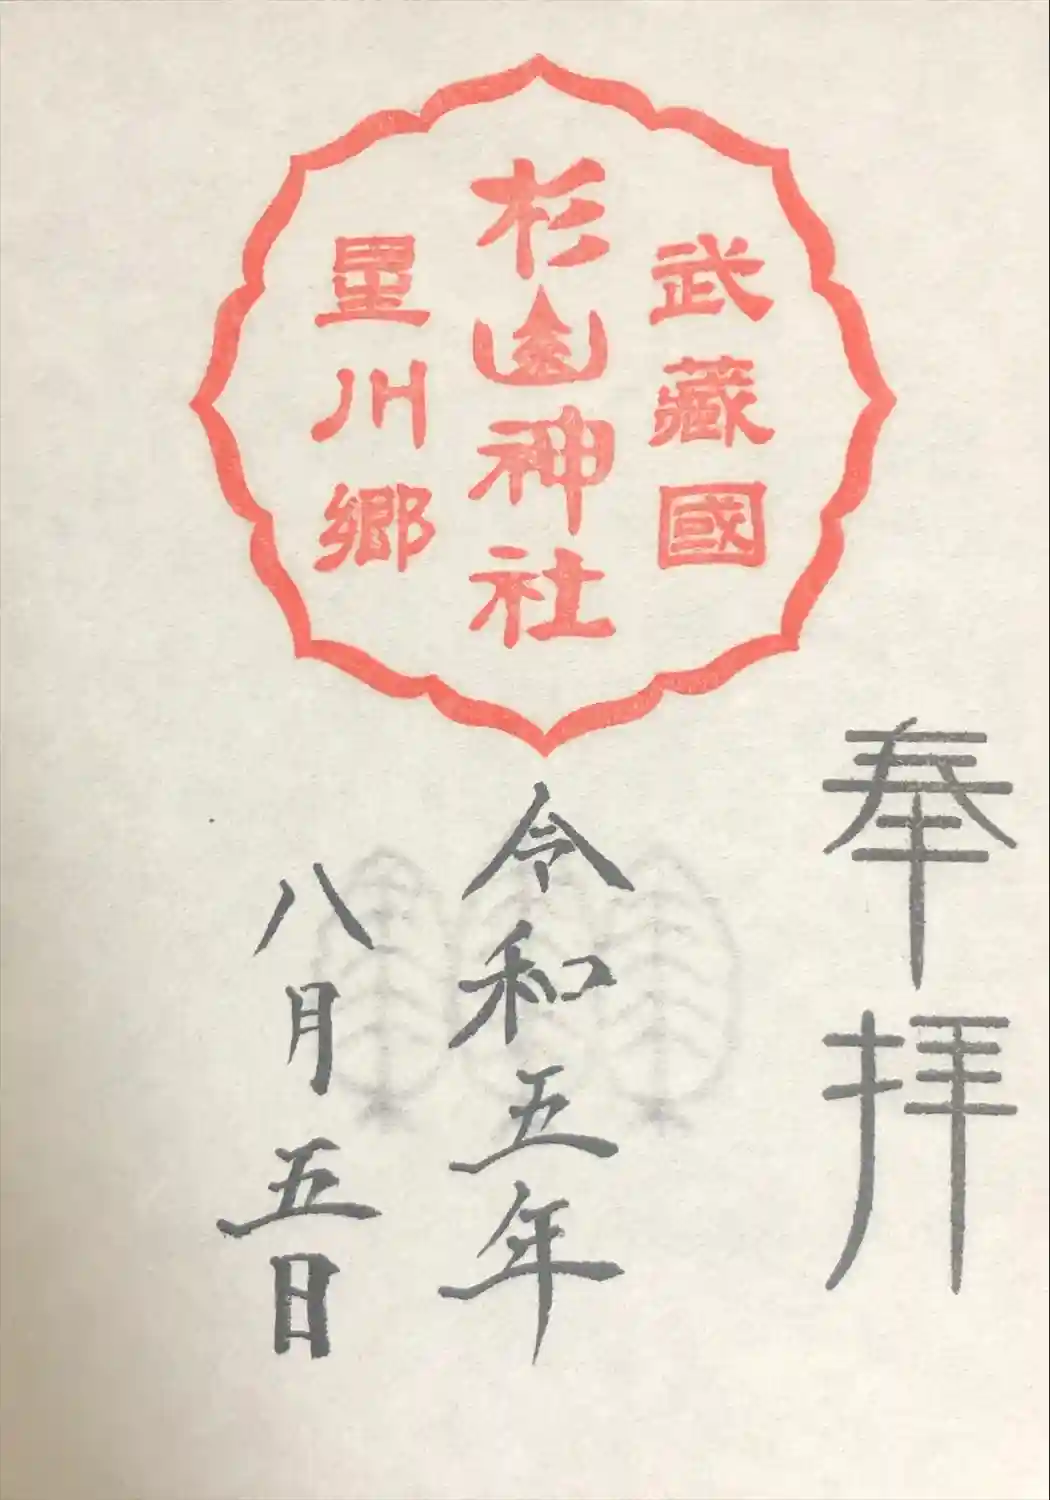 武藏國
杉山神社
星川郷
奉拝
令和五年
八月五日